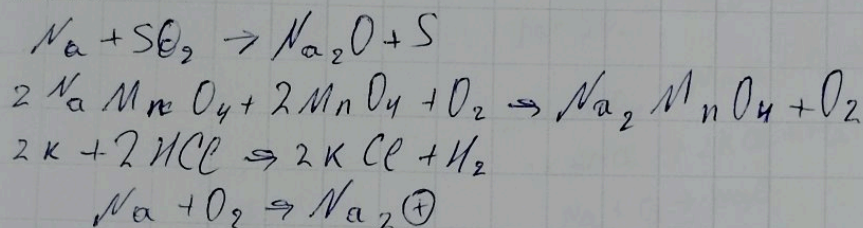 Na + SO₂ → Na₂O + S
2 Na Mn O₄ + 2 Mn O₄ + O₂ → Na₂ Mn O₄ + O₂
2K + 2HCl → 2KCl + H₂
Na + O₂ → Na₂⊕